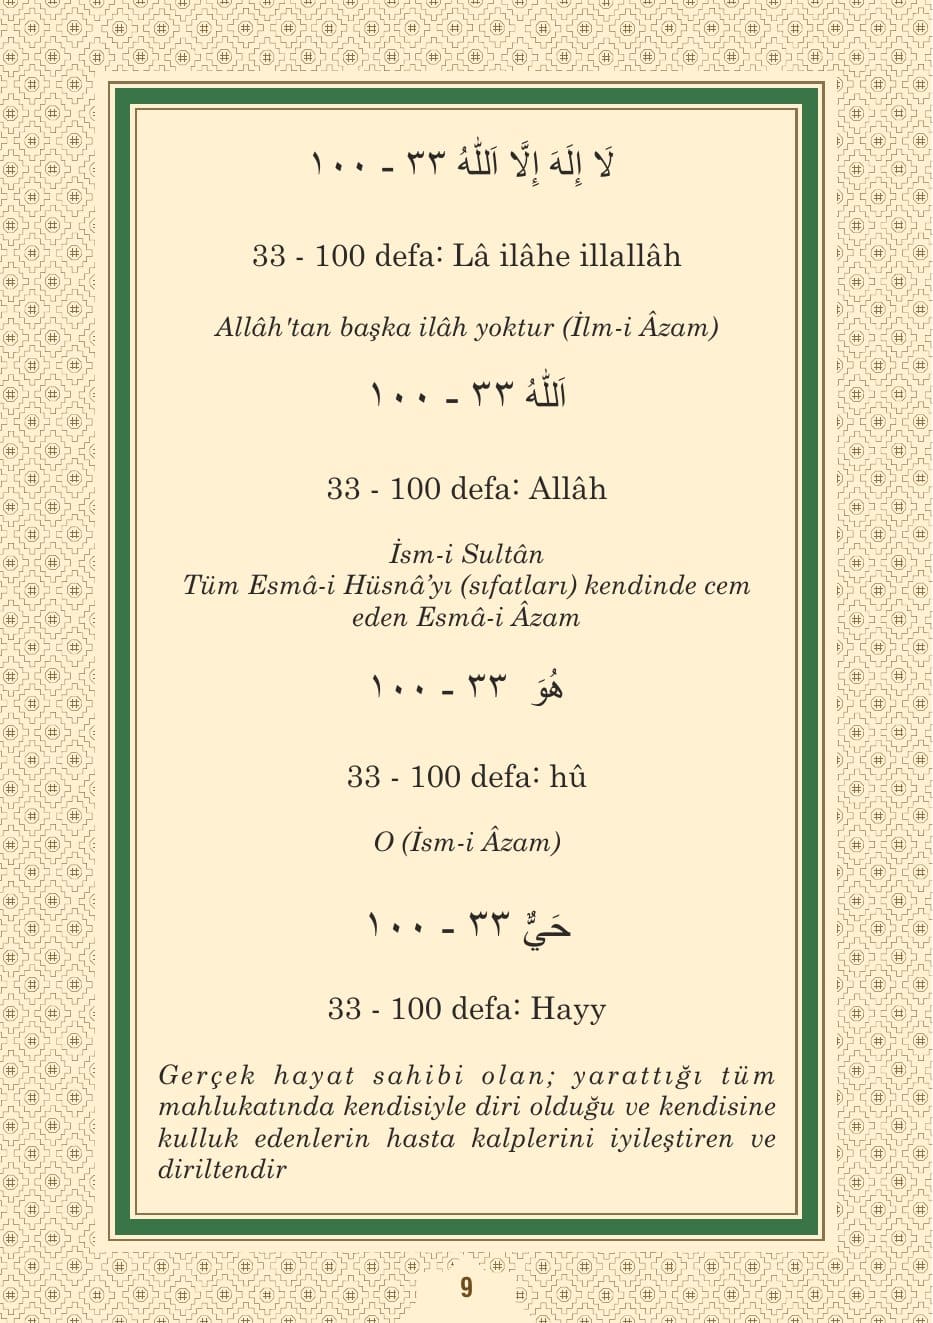 لَا إِلَهَ إِلَّا اَللّٰهُ ٣٣ - ١٠٠
33 - 100 defa: Lâ ilâhe illallâh
Allâh'tan başka ilâh yoktur (İlm-i Âzam)
اَللّٰهُ ٣٣ - ١٠٠
33 - 100 defa: Allâh
İsm-i Sultân
Tüm Esmâ-i Hüsnâ’yı (sıfatları) kendinde cem
eden Esmâ-i Âzam
هُوَ ٣٣ - ١٠٠
33 - 100 defa: hû
O (İsm-i Âzam)
حَيٌّ ٣٣ - ١٠٠
33 - 100 defa: Hayy
Gerçek hayat sahibi olan; yarattığı tüm
mahlukatında kendisiyle diri olduğu ve kendisine
kulluk edenlerin hasta kalplerini iyileştiren ve
diriltendir
9